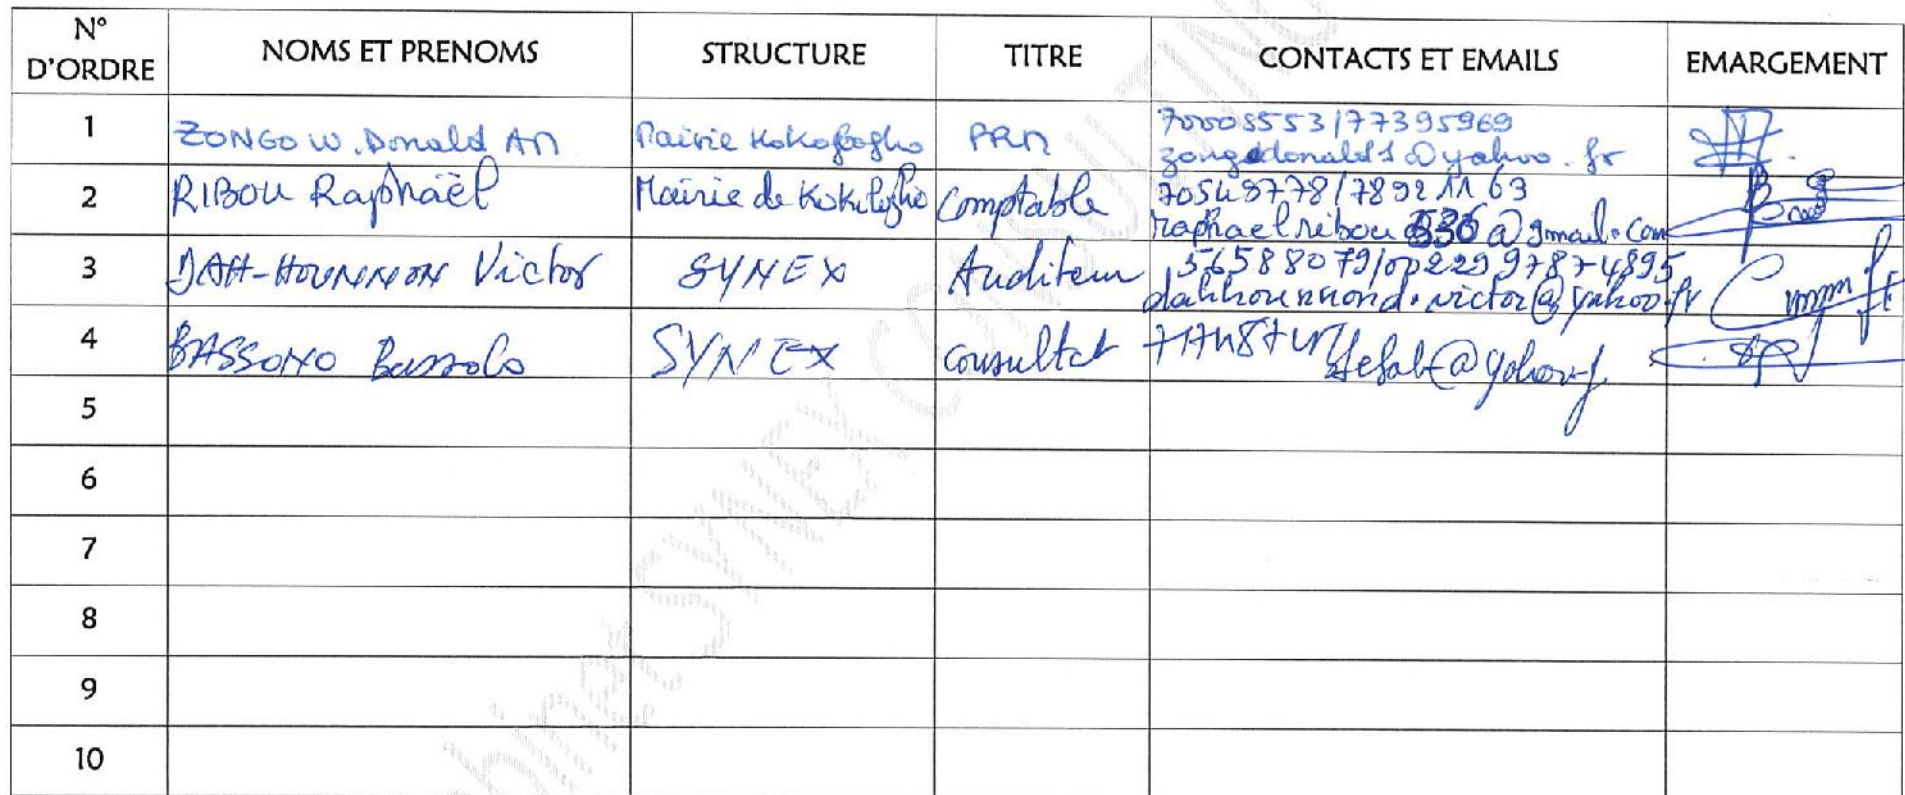 N° D'ORDRE NOMS ET PRENOMS STRUCTURE TITRE CONTACTS ET EMAILS EMARGEMENT
1 ZONGO W. Donald Mairie PRM 70008553/77395969
zongodonald1@yahoo.fr
2 RIBOU Raphaël Mairie de Comptable 70548778/78921163
raphaelribou@gmail.com
3 DAH-HOUNNON Victor SYNEX Auditeur 56588079/0022997874895
dahhounnond.victor@yahoo.fr
4 BASSONO Bassolo SYNEX consultat
5
6
7
8
9
10
SYNEX CONSULTING